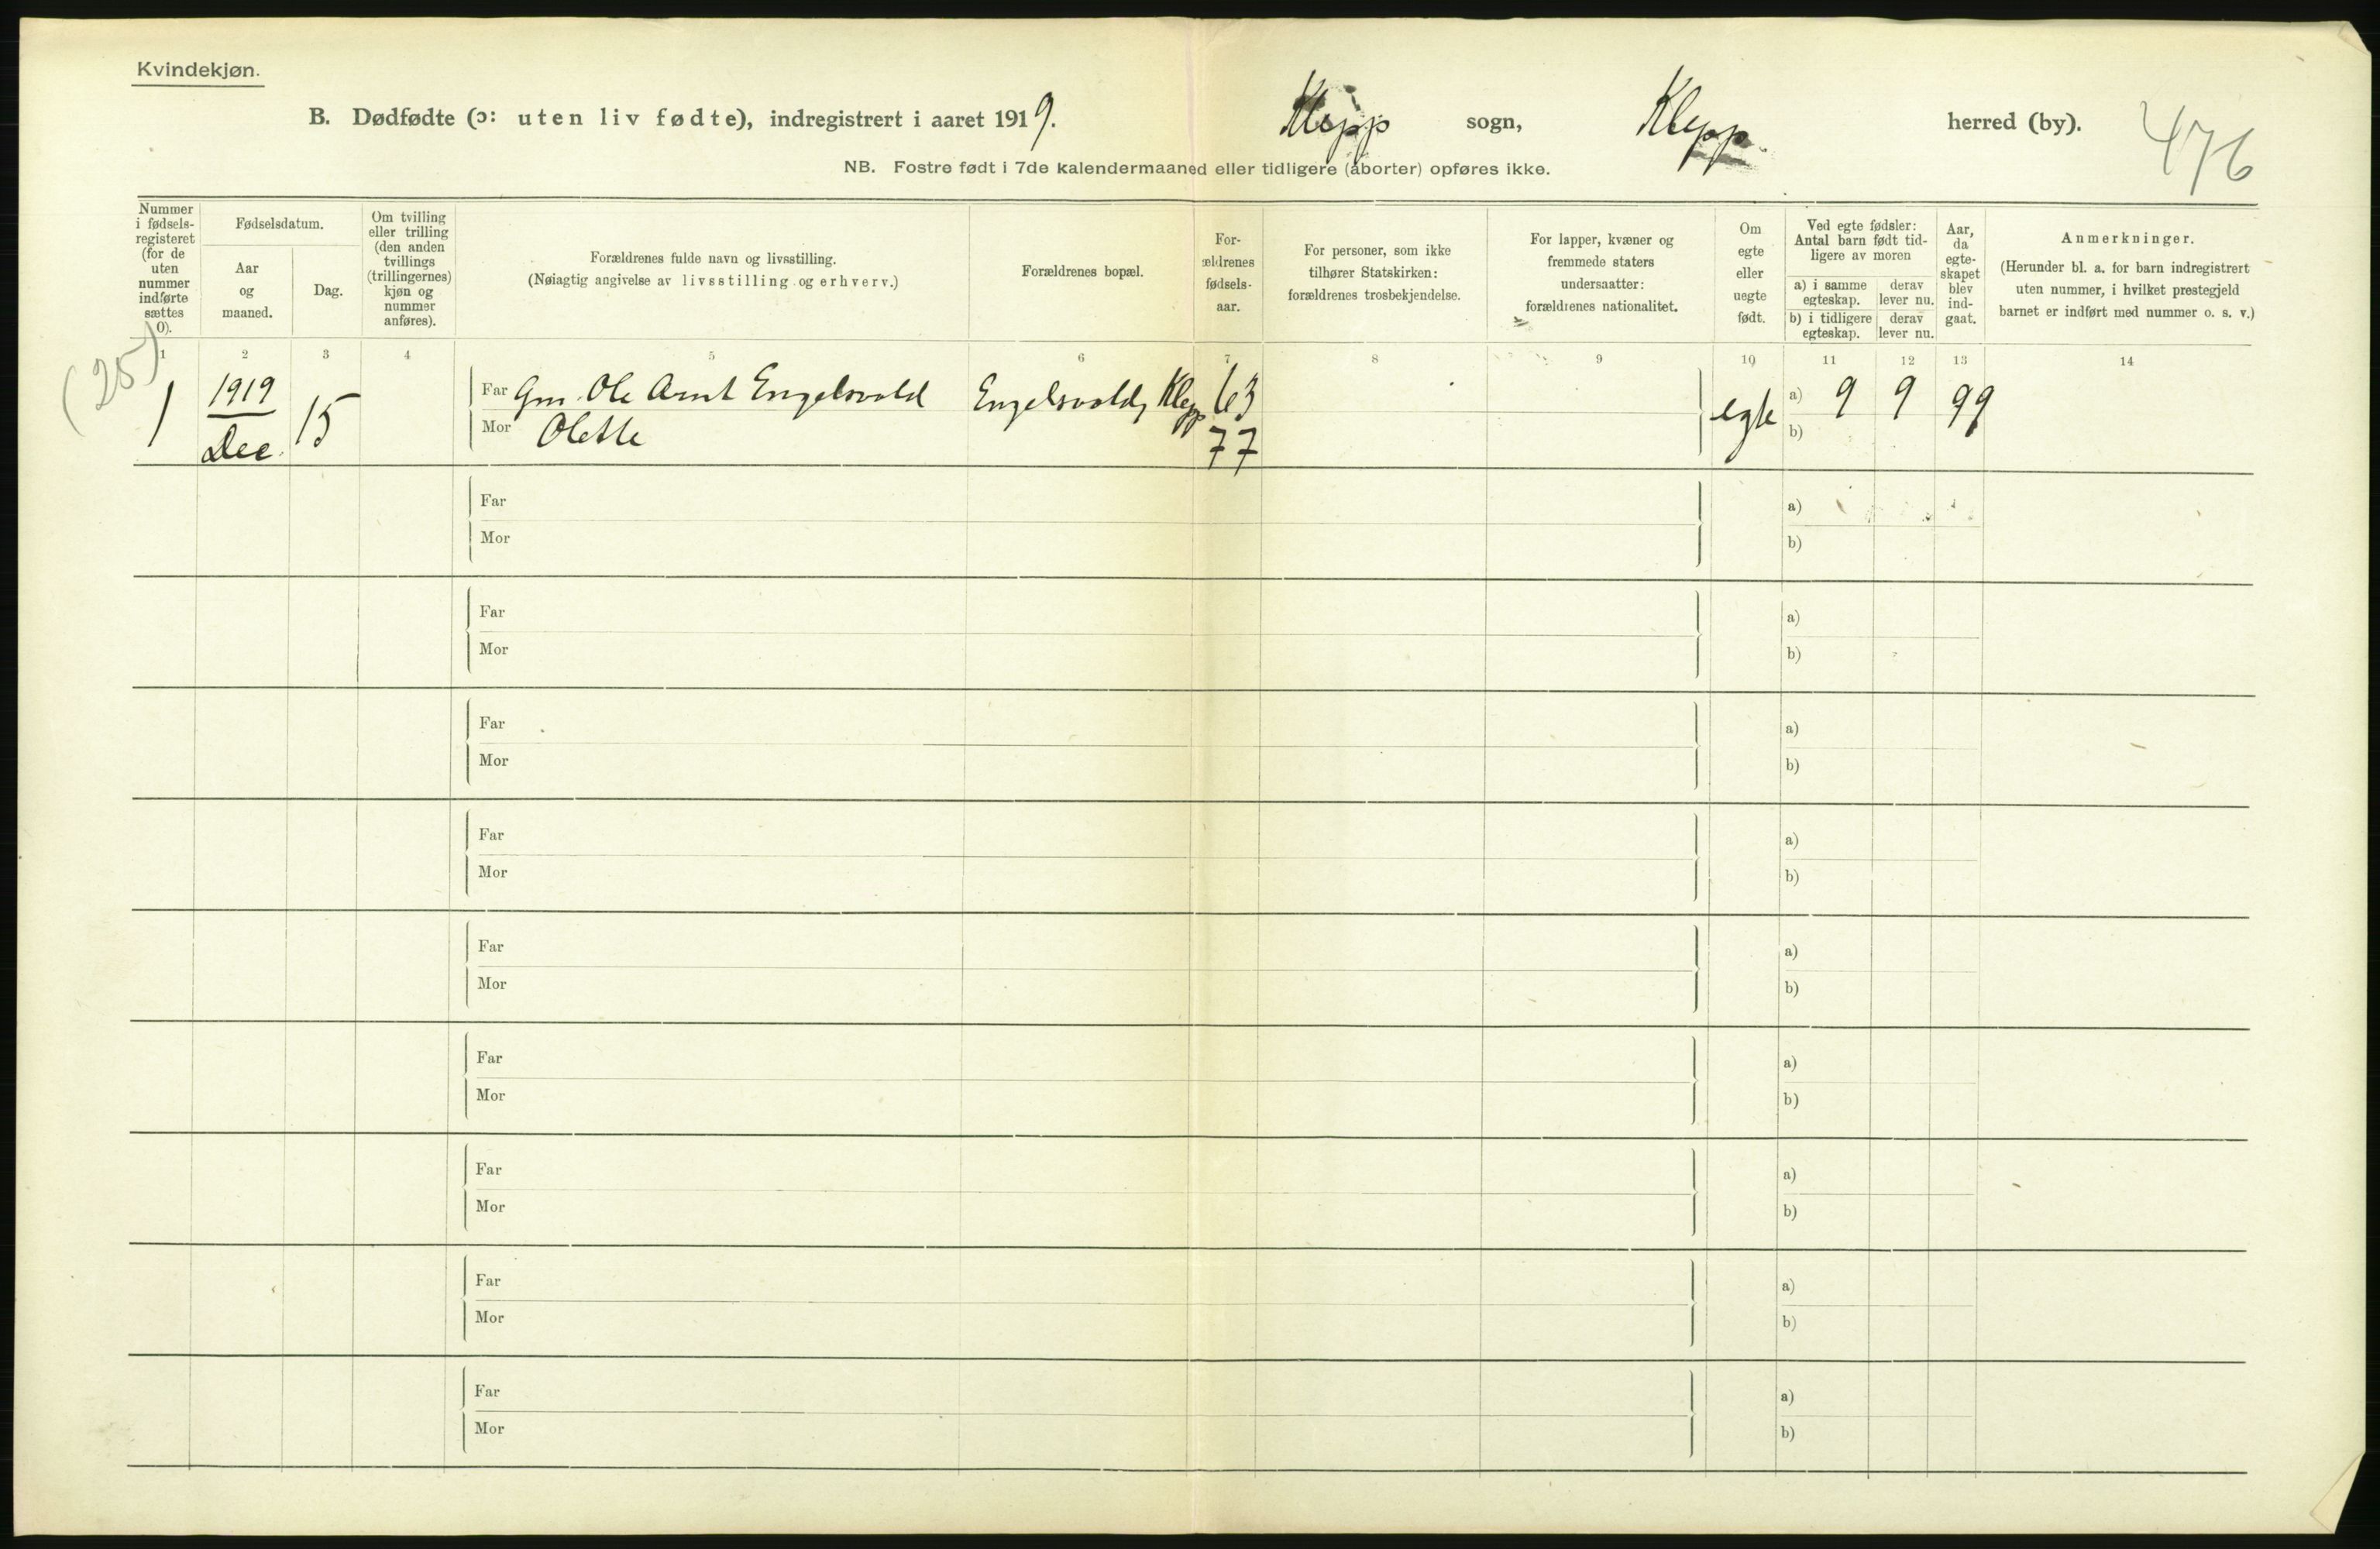 Kvindekjøn.
B. Dødfødte (ɔ: uten liv fødte), indregistrert i aaret 1919. Klepp sogn, Klepp herred (by). 476
NB. Fostre født i 7de kalendermaaned eller tidligere (aborter) opføres ikke.
Nummer
i fødsels-
registeret
(for de
uten
nummer
indførte
sættes
0).
Fødselsdatum.
Aar
og
maaned.
Dag.
Om tvilling
eller trilling
(den anden
tvillings
(trillingernes)
kjøn og
nummer
anføres).
Forældrenes fulde navn og livsstilling.
(Nøiagtig angivelse av livsstilling og erhverv.)
Forældrenes bopæl.
For-
ældrenes
fødsels-
aar.
For personer, som ikke
tilhører Statskirken:
forældrenes trosbekjendelse.
For lapper, kvæner og
fremmede staters
undersaatter:
forældrenes nationalitet.
Om
egte
eller
uegte
født.
Ved egte fødsler:
Antal barn født tid-
ligere av moren
a) i samme
egteskap.
derav
lever nu.
b) i tidligere
egteskap.
derav
lever nu.
Aar,
da
egte-
skapet
blev
ind-
gaat.
Anmerkninger.
(Herunder bl. a. for barn indregistrert
uten nummer, i hvilket prestegjeld
barnet er indført med nummer o. s. v.)
1 2 3 4 5 6 7 8 9 10 11 12 13 14
(25)
1 1919 Dec. 15
Far Gm. Ole Arnt Engelsvold Engelsvold, Klepp 63 egte a) 9 9 99
Mor Olette 77 b)
Far a)
Mor b)
Far a)
Mor b)
Far a)
Mor b)
Far a)
Mor b)
Far a)
Mor b)
Far a)
Mor b)
Far a)
Mor b)
Far a)
Mor b)
Far a)
Mor b)